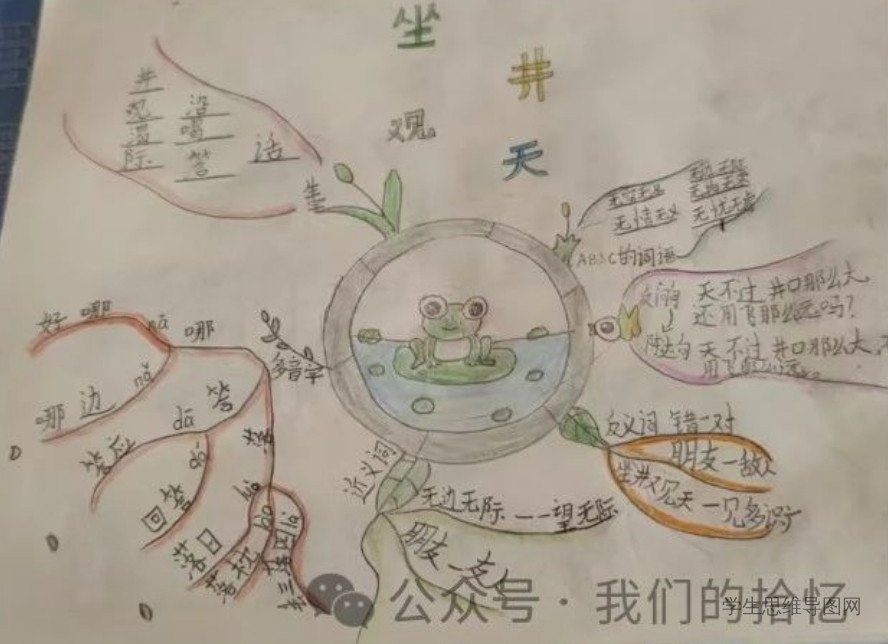 坐井观天
井 观 渴 际
没 喝 答
话
生
ABAC的词语
无情无义
无忧无虑
反问句 天不过井口那么大,
还用飞那么远吗?
陈述句 天不过井口那么大,不
用飞那么远。
反义词 错一对
朋友—敌人
坐井观天—见多识广
近义词
无边无际—一望无际
朋友—友人
多音字
哪
nā
好哪
nǎ
哪边
答
dā
答应
dá
回答
落
luò
落日
lào
落枕
là
公众号·我们的拾忆
学生思维导图网